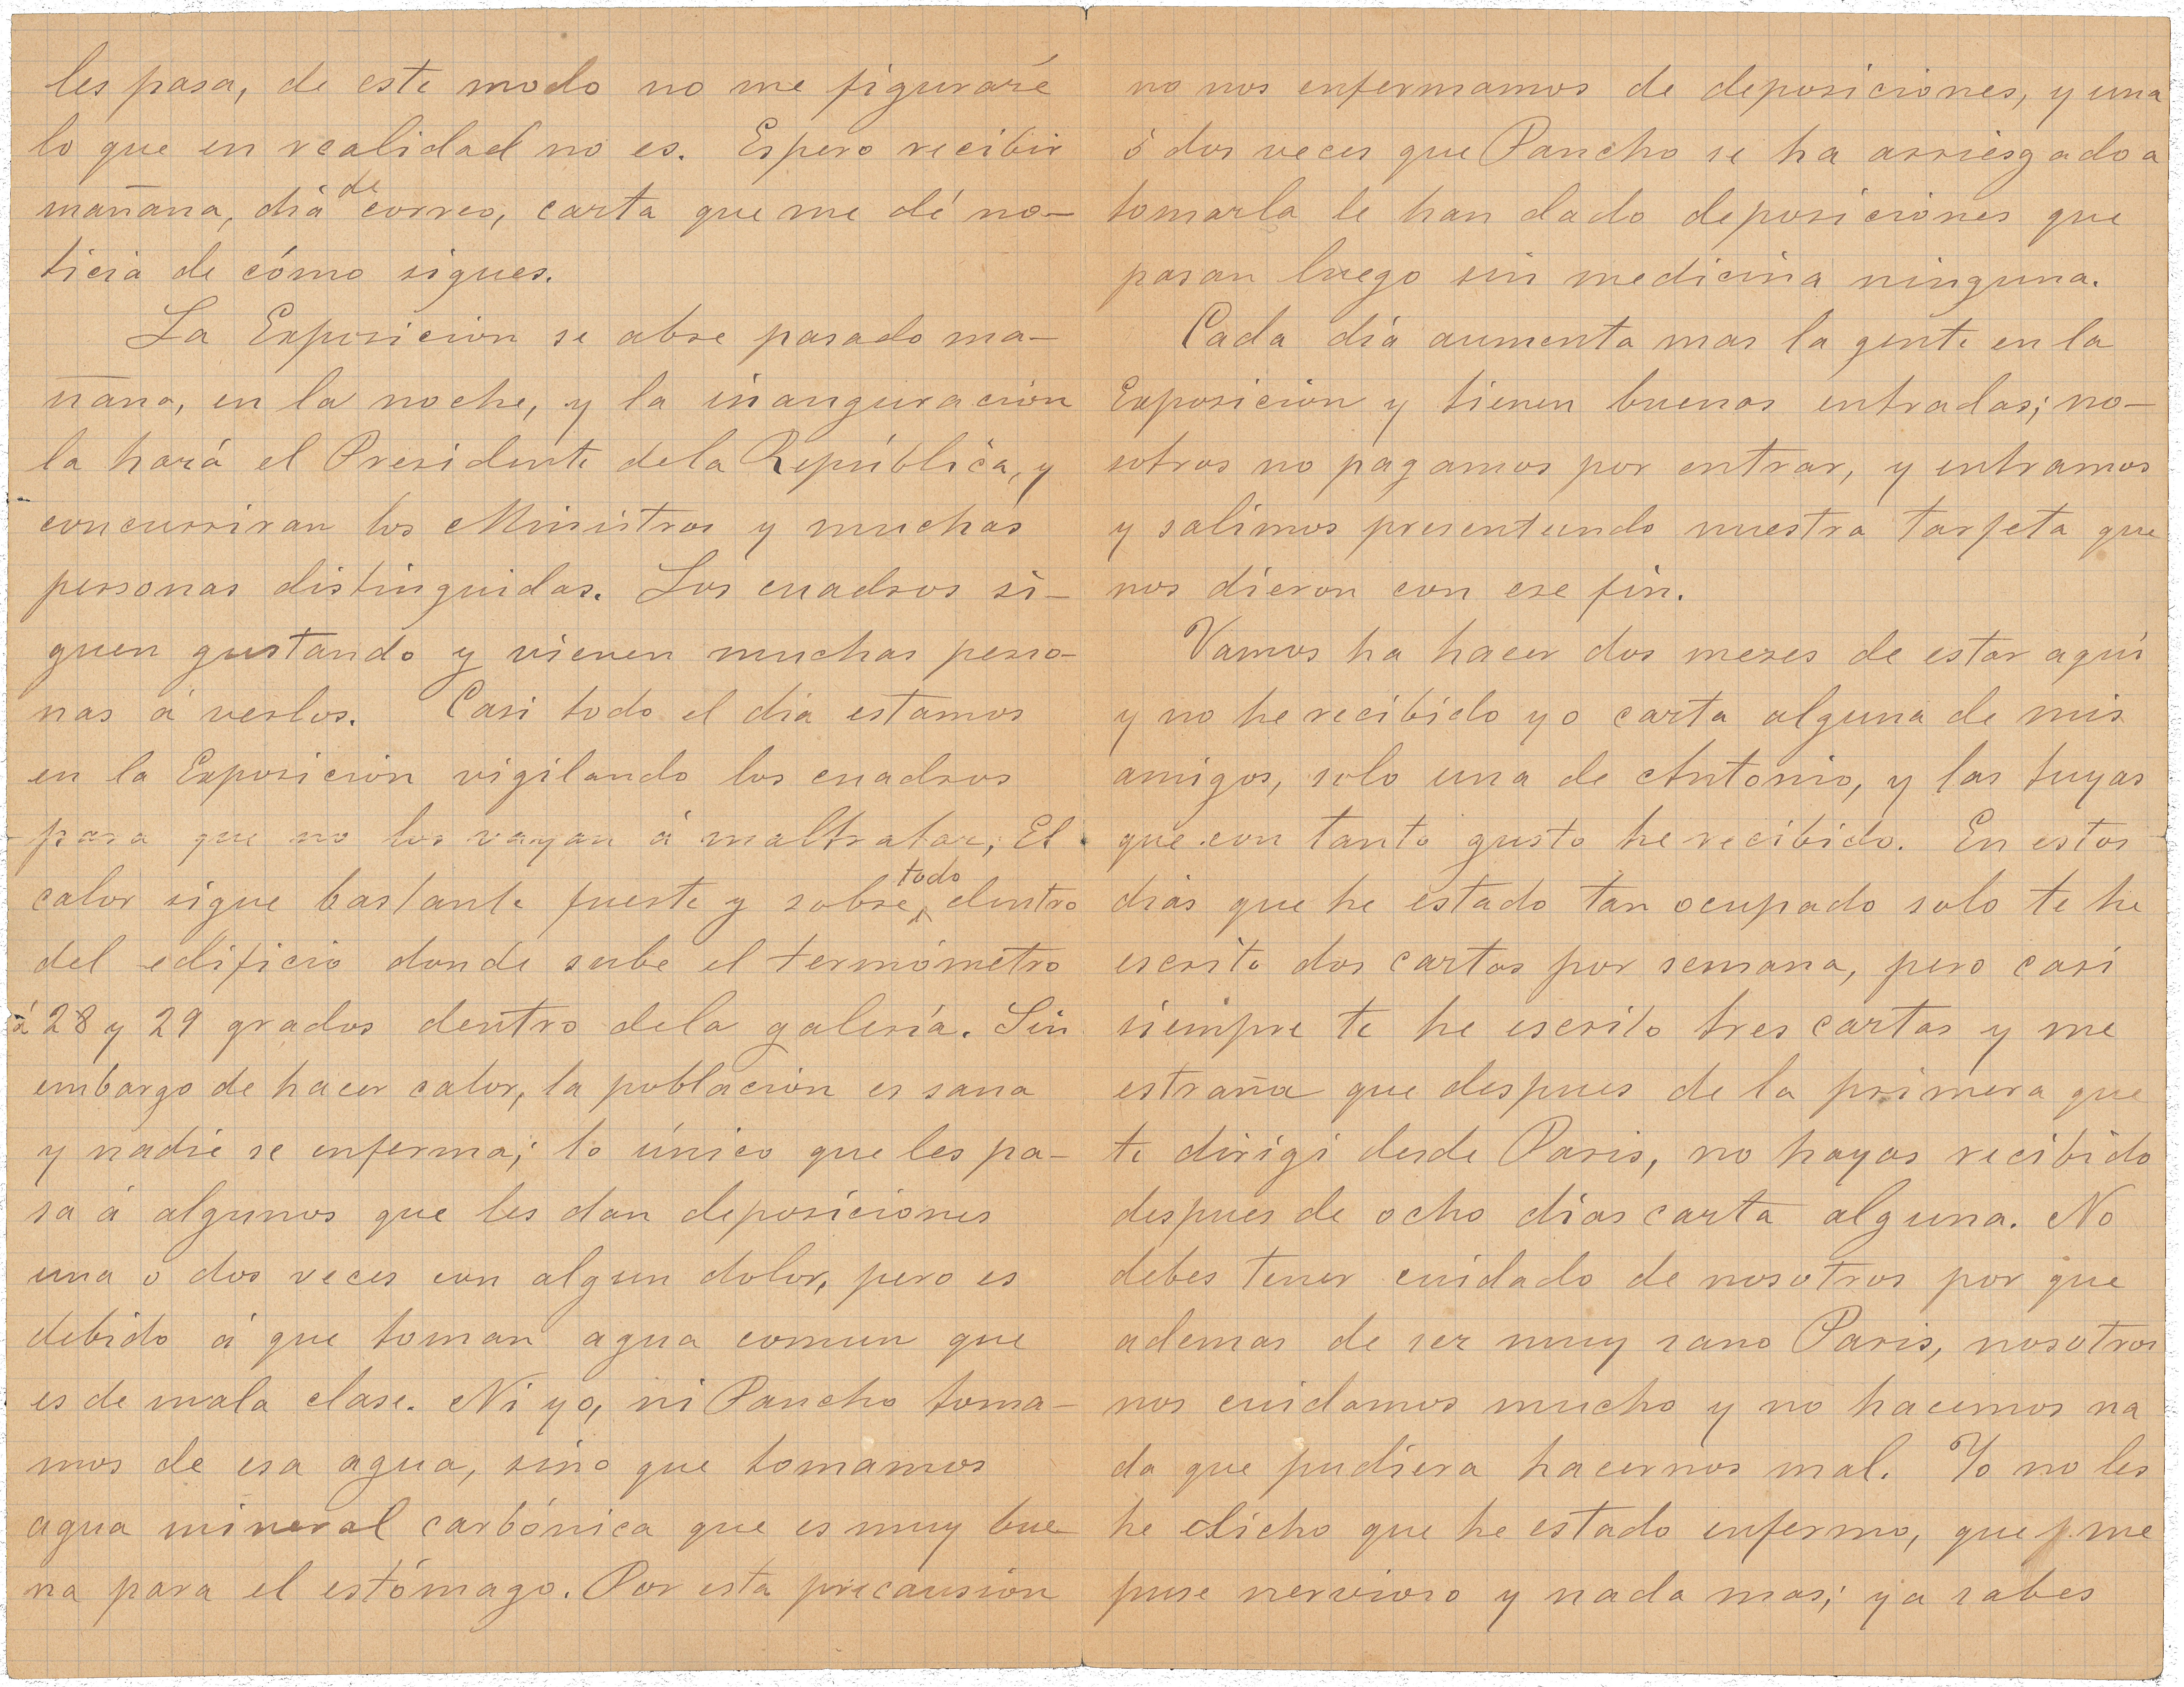 les pasa, de este modo no me figuraré
lo que en realidad no es. Espero recibir
mañana, dia de correo, carta que me dé no-
ticia de cómo sigues.
La Exposicion se abre pasado ma-
ñana, en la noche, y la inauguracion
la hará el Presidente dela República, y
concurriran los Ministros y muchas
personas distinguidas. Los cuadros si-
guen gustando y vienen muchas perso-
nas á verlos. Casi todo el dia estamos
en la Exposicion vigilando los cuadros
para que no los vayan á maltratar; El
calor sigue bastante fuerte y sobre todo dentro
del edificio donde sube el termómetro
á 28 y 29 grados dentro dela galería. Sin
embargo de hacer calor, la poblacion es sana
y nadie se enferma; lo único que les pa-
sa á algunos que les dan deposiciones
una o dos veces con algun dolor, pero es
debido á que toman agua comun que
es de mala clase. Ni yo, ni Pancho toma-
mos de esa agua, sino que tomamos
agua mineral carbónica que es muy bue
na para el estómago. Por esta precausion
no nos enfermamos de deposiciones, y una
ó dos veces que Pancho se ha arriesgado a
tomarla le han dado deposiciones que
pasan luego sin medicina ninguna.
Cada día aumenta mas la gente en la
Exposicion y tienen buenas entradas; no-
sotros no pagamos por entrar, y entramos
y salimos presentando nuestra tarjeta que
nos dieron con ese fin.
Vamos ha hacer dos meses de estar aquí
y no he recibido yo carta alguna de mis
amigos, solo una de Antonio, y las tuyas
que con tanto gusto he recibido. En estos
dias que he estado tan ocupado solo te he
escrito dos cartas por semana, pero casi
siempre te he escrito tres cartas y me
estraña que despues de la primera que
te dirigi desde Paris, no hayas recibido
despues de ocho dias carta alguna. No
debes tener cuidado de nosotros por que
ademas de ser muy sano Paris, nosotros
nos cuidamos mucho y no hacemos na
da que pudiera hacernos mal. Yo no les
he dicho que he estado enfermo, que me
puse nervioso y nada mas; ya sabes